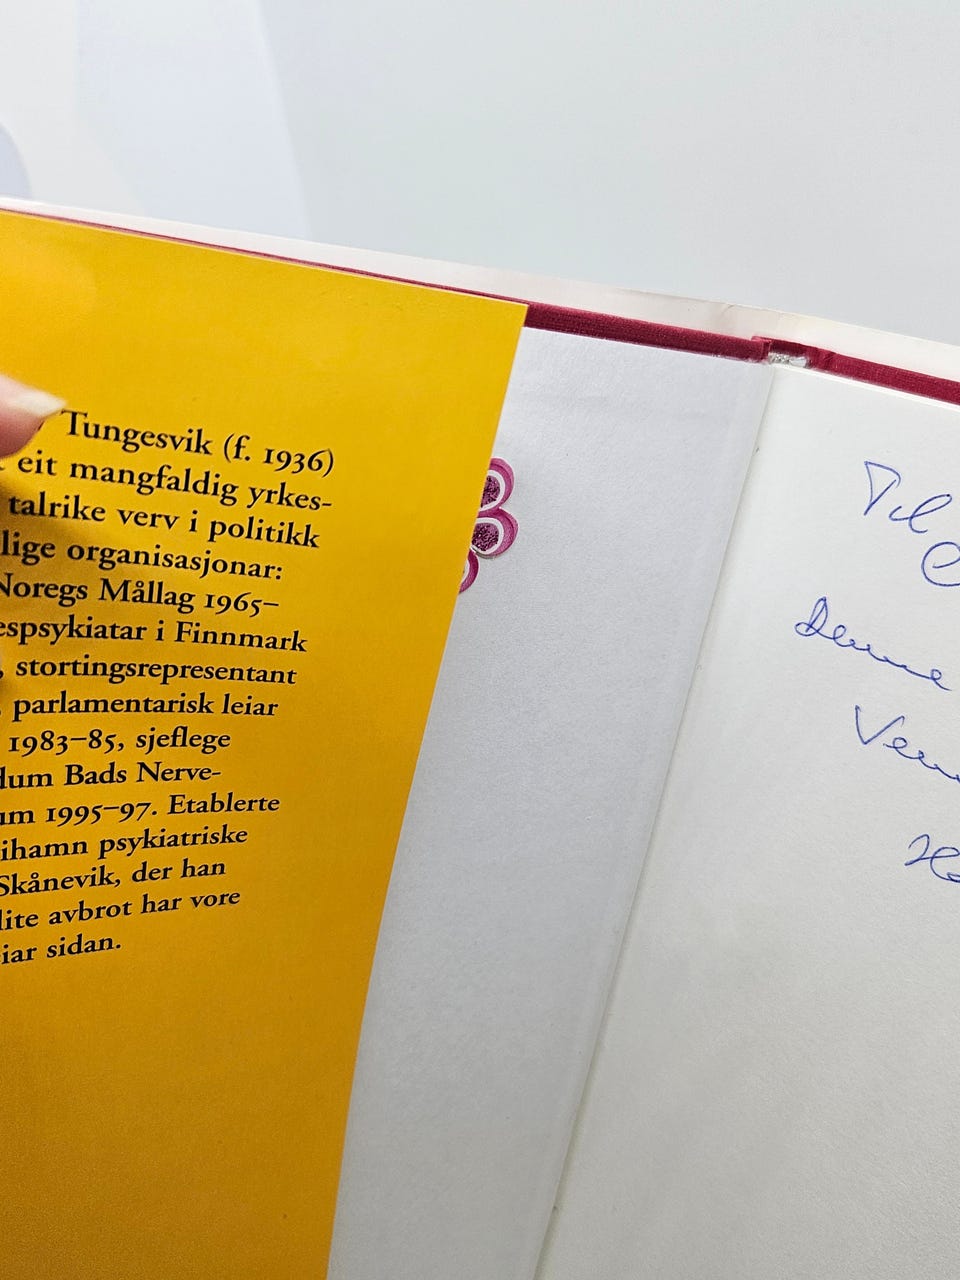 Tungesvik (f. 1936)
eit mangfaldig yrkes-
talrike verv i politikk
lige organisasjonar:
Noregs Mållag 1965–
espsykiatar i Finnmark
, stortingsrepresentant
parlamentarisk leiar
1983–85, sjeflege
dum Bads Nerve-
um 1995–97. Etablerte
ihamn psykiatriske
Skånevik, der han
lite avbrot har vore
eiar sidan.
Til
Denne